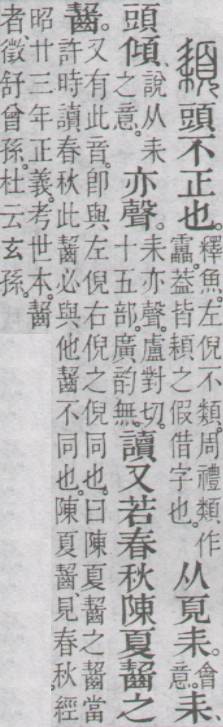 頛頭不正也。釋魚左倪不類。周禮類作靁。葢皆頛之假借字也。从頁耒。會意。耒
頭傾、說从耒之意。亦聲。耒亦聲。盧對切。十五部。廣韵無。讀又若春秋陳夏齧之
齧。又有此音。卽與左倪右倪之倪同也。曰陳夏齧之齧當許時讀春秋此齧必與他齧不同也。陳夏齧、見春秋經
昭廿三年正義。考世本。齧者、徵舒曾孫。杜云玄孫。